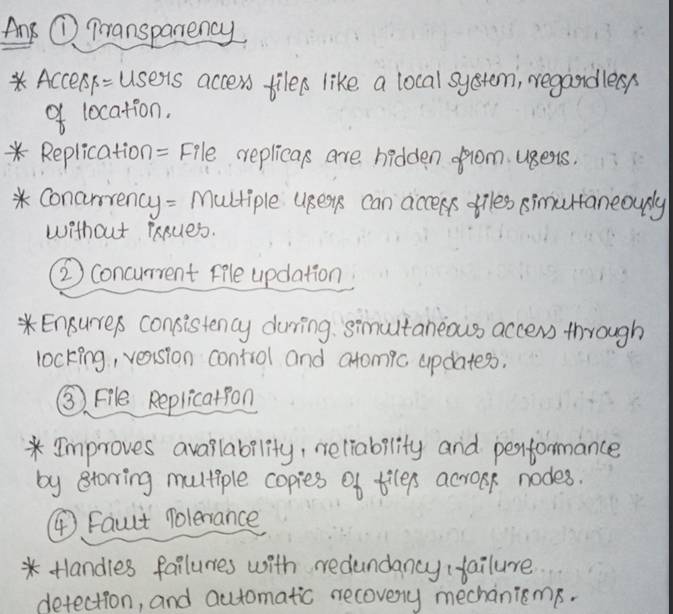 Ans ① Transparency
* Access = Users access files like a local system, regardless
of location.
* Replication = File replicas are hidden from users.
* Concurrency = Multiple users can access files simultaneously
without issues.
② Concurrent File updation
* Ensures consistency during simultaneous access through
locking, version control and atomic updates.
③ File Replication
* Improves availability, reliability and performance
by storing multiple copies of files across nodes.
④ Fault Tolerance
* Handles failures with redundancy, failure
detection, and automatic recovery mechanisms.